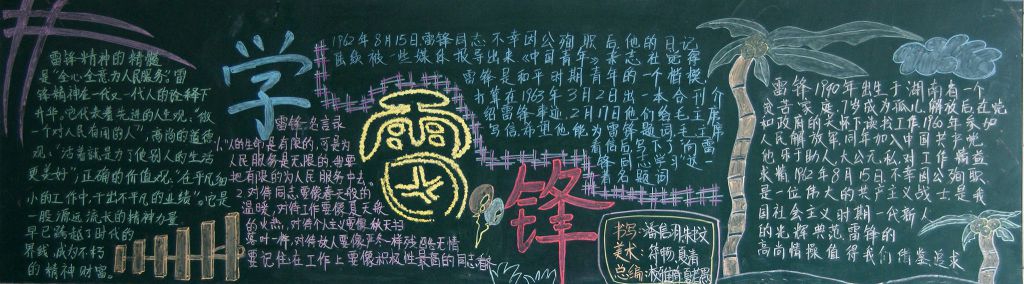 雷锋精神的精髓
是"全心全意为人民服务"雷
锋精神在一代又一代人的诠释下
升华。它代表着先进的人生观,"做
一个对人民有用的人"高尚的道德
观,"活着就是为了使别人的生活
更美好"正确的价值观,"在平凡细
小的工作中,干出不平凡的业绩"。它是
一股源远流长的精神力量
早已跨越了时代的
界线,成为不朽
的精神财富。
学
雷
锋
雷锋名言录
1.人的生命是有限的,可是为
人民服务是无限的,我要
把有限的为人民服务中去。
2.对待同志要像春天般的
温暖,对待工作要像夏天般
的火热,对待个人主义要像秋天扫
落叶一样,对待敌人要像严冬一样残酷无情
要记住:在工作上要像积极性最高的同志看齐
1962年8月15日雷锋同志不幸因公殉职后他的日记
陆续被一些媒体报导出来《中国青年》杂志社觉得
雷锋是和平时期青年的一个楷模
打算在1963年3月2日出一本合刊介
绍雷锋事迹2月17日他们给毛主席
写信希望他能为雷锋题词毛主席
看信后写下了"向雷
锋同志学习"这一
著名题词
雷锋1940年出生于湖南省一个
贫苦家庭,7岁成为孤儿解放后在党
和政府的关怀下读书工作1960年参加
人民解放军,同年加入中国共产党
他乐于助人,大公无私,对工作精益
求精1962年8月15日不幸因公殉职
是一位伟大的共产主义战士,是我
国社会主义时期一代新人
的光辉典范,雷锋的
高尚情操值得我们借鉴追求
书写:
美术:
总编: